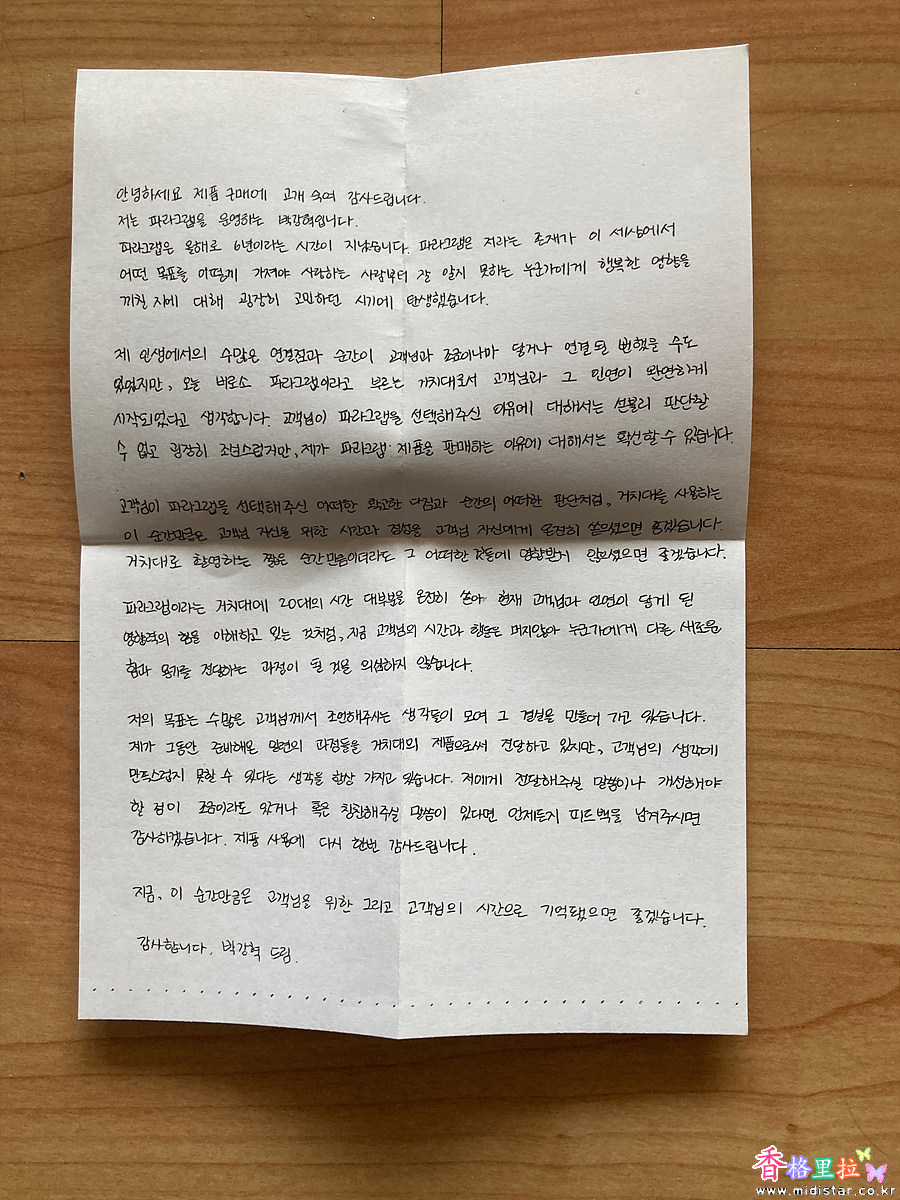 안녕하세요 제품 구매에 고개 숙여 감사드립니다.
저는 파라그랩을 운영하는 박강혁입니다.
파라그랩은 올해로 6년이라는 시간이 지났습니다. 파라그랩은 저라는 존재가 이 세상에서
어떤 목표를 어떻게 가져야 사랑하는 사람부터 잘 알지 못하는 누군가에게 행복한 영향을
끼칠지에 대해 굉장히 고민하던 시기에 탄생했습니다.
제 인생에서의 수많은 연결점과 순간이 고객님과 조금이나마 닿거나 연결될 뻔했을 수도
있었지만, 오늘 비로소 파라그랩이라고 부르는 거치대로서 고객님과 그 인연이 완연하게
시작되었다고 생각합니다. 고객님이 파라그랩을 선택해주신 이유에 대해서는 섣불리 판단할
수 없고 굉장히 조심스럽지만, 제가 파라그랩 제품을 판매하는 이유에 대해서는 확신할 수 있습니다.
고객님이 파라그랩을 선택해주신 어떠한 확고한 다짐과 순간의 어떠한 판단처럼, 거치대를 사용하는
이 순간만큼은 고객님 자신을 위한 시간과 결심을 고객님 자신에게 온전히 쏟으셨으면 좋겠습니다.
거치대로 촬영하는 짧은 순간만큼이더라도 그 어떠한 것들에 영향받지 않으셨으면 좋겠습니다.
파라그랩이라는 거치대에 20대의 시간 대부분을 온전히 쏟아 현재 고객님과 인연이 닿게 된
영향력의 힘을 이해하고 있는 것처럼, 지금 고객님의 시간과 행운은 머지않아 누군가에게 다른 새로운
힘과 용기를 전달하는 과정이 될 것을 의심하지 않습니다.
저의 목표는 수많은 고객님께서 조언해주시는 생각들이 모여 그 결실을 만들어 가고 있습니다.
제가 그동안 준비해온 일련의 과정들을 거치대의 제품으로써 전달하고 있지만, 고객님의 생각에
만족스럽지 못할 수 있다는 생각을 항상 가지고 있습니다. 저에게 전달해주실 말씀이나 개선해야
할 점이 조금이라도 있거나 혹은 칭찬해주실 말씀이 있다면 언제든지 피드백을 남겨주시면
감사하겠습니다. 제품 사용에 다시 한번 감사드립니다.
지금, 이 순간만큼은 고객님을 위한 그리고 고객님의 시간으로 기억됐으면 좋겠습니다.
감사합니다. 박강혁 드림.
香格里拉
www.midistar.co.kr